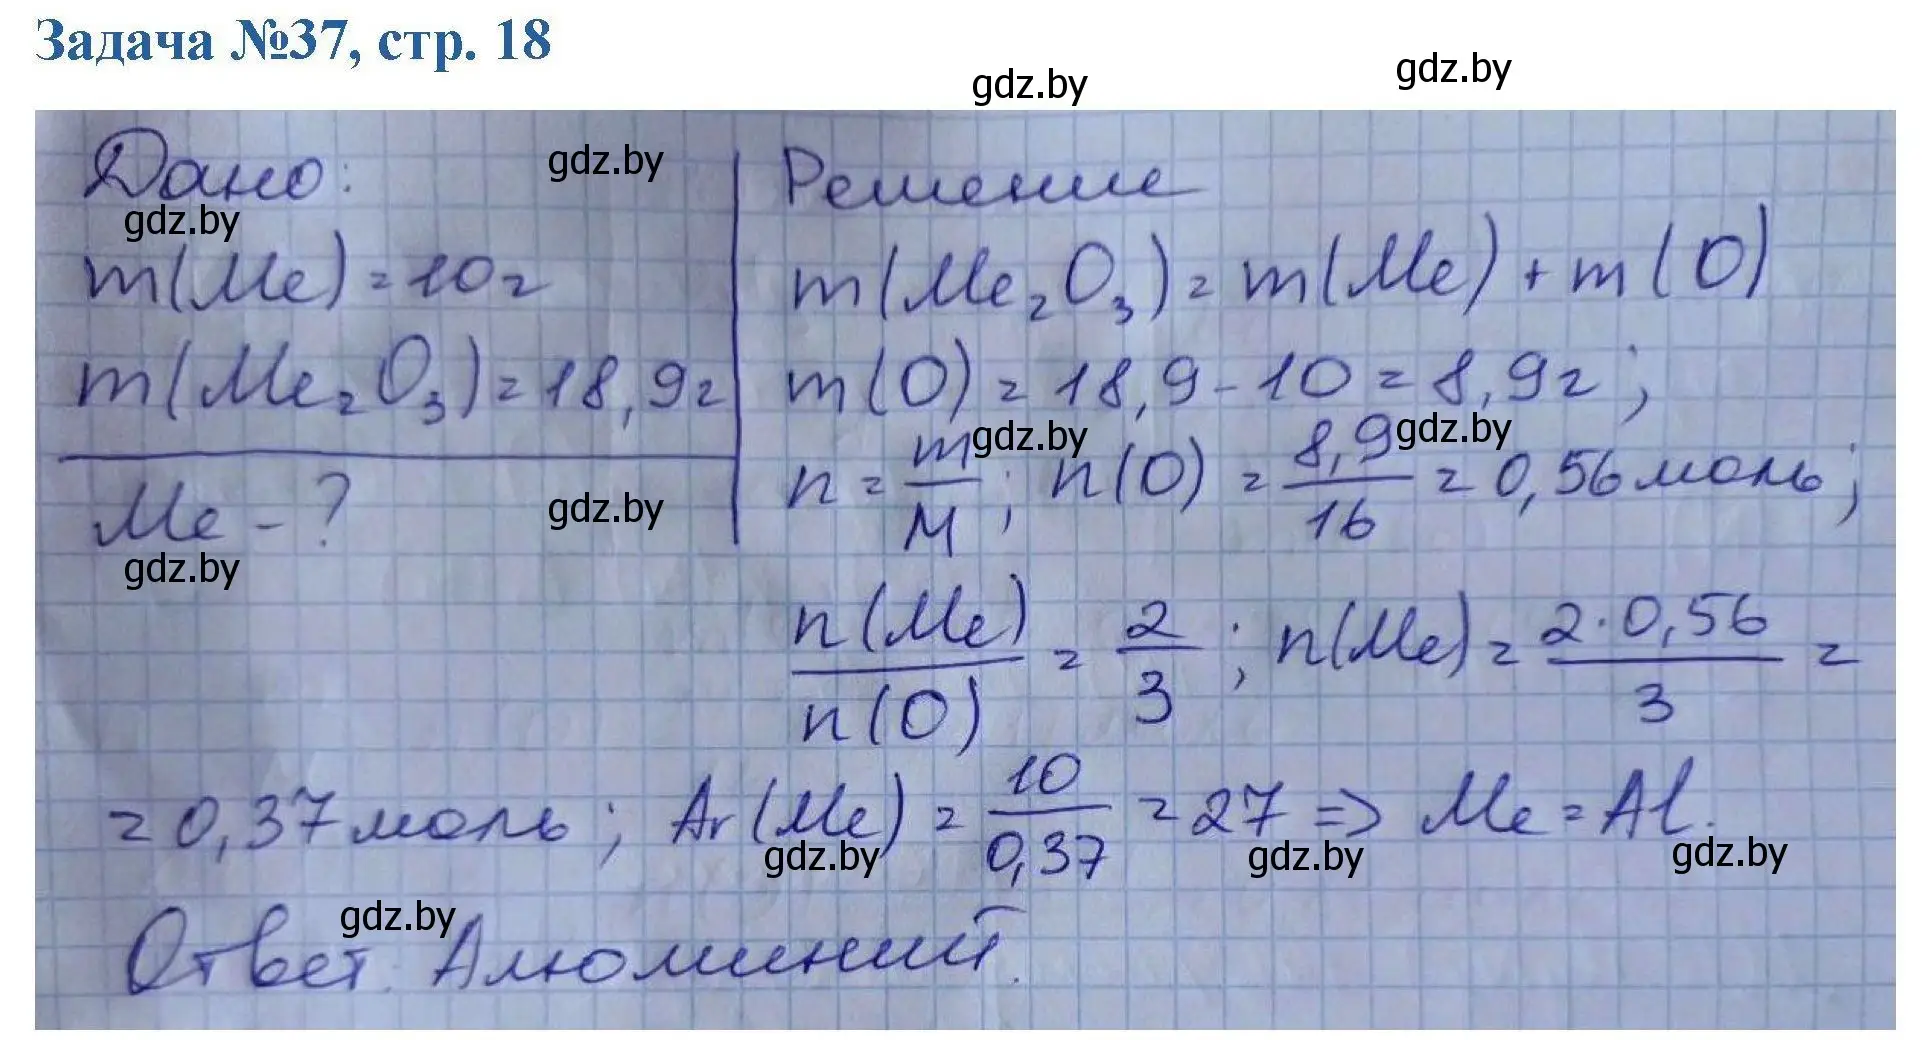 Задача №37, стр. 18
gdz.by gdz.by
Дано: gdz.by Решение
gdz.by
m(Me) = 10г m(Me₂O₃) = m(Me) + m(O)
m(Me₂O₃) = 18,9г m(O) = 18,9 - 10 = 8,9г;
gdz.by gdz.by
Me - ? gdz.by n = m/M; n(O) = 8,9/16 = 0,56 моль;
gdz.by
n(Me)/n(O) = 2/3; n(Me) = 2·0,56/3 =
= 0,37 моль; Ar(Me) = 10/0,37 = 27 => Me = Al.
gdz.by gdz.by gdz.by
gdz.by
Ответ: Алюминий.